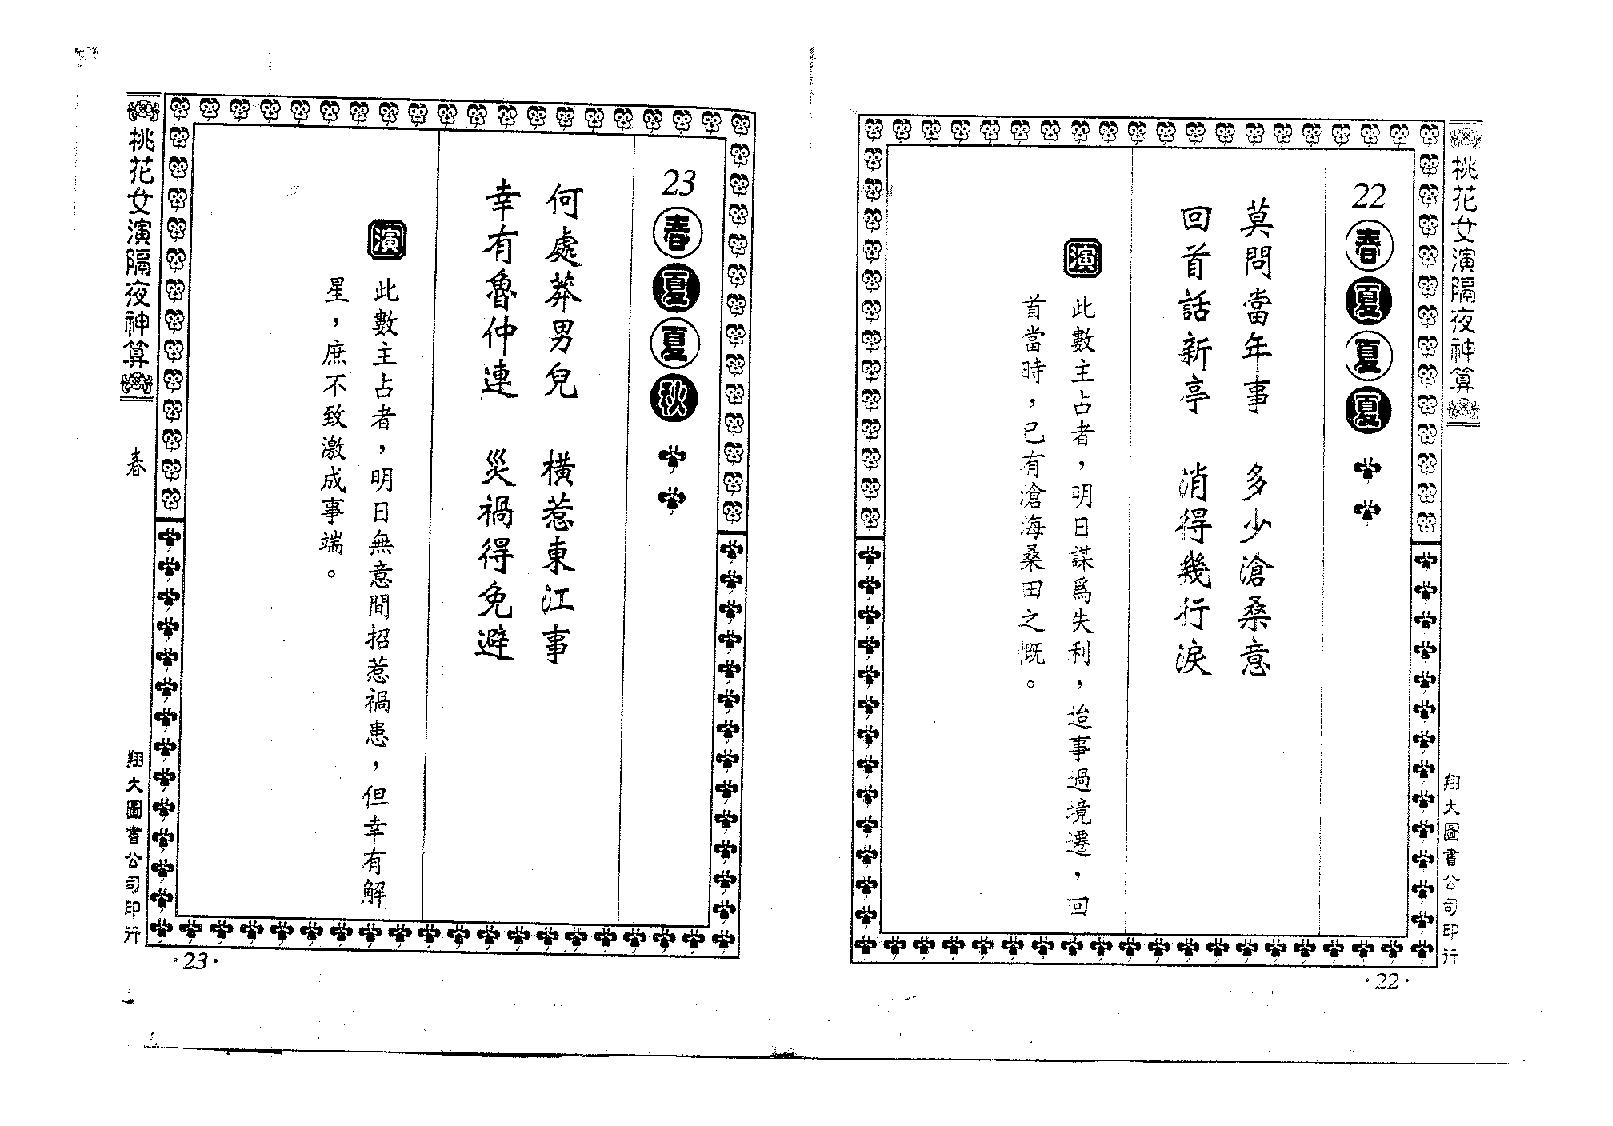 桃花女演隔夜神算
翔大圖書公司印行
22
春夏夏夏
莫問當年事 多少滄桑意
回首話新亭 消得幾行淚
演
此數主占者，明日謀爲失利，迨事過境遷，回
首當時，已有滄海桑田之慨。
·22·
23
春夏夏秋
何處莽男兒 橫惹東江事
幸有魯仲連 災禍得免避
演
此數主占者，明日無意間招惹禍患，但幸有解
星，庶不致激成事端。
桃花女演隔夜神算
春
翔大圖書公司印行
·23·